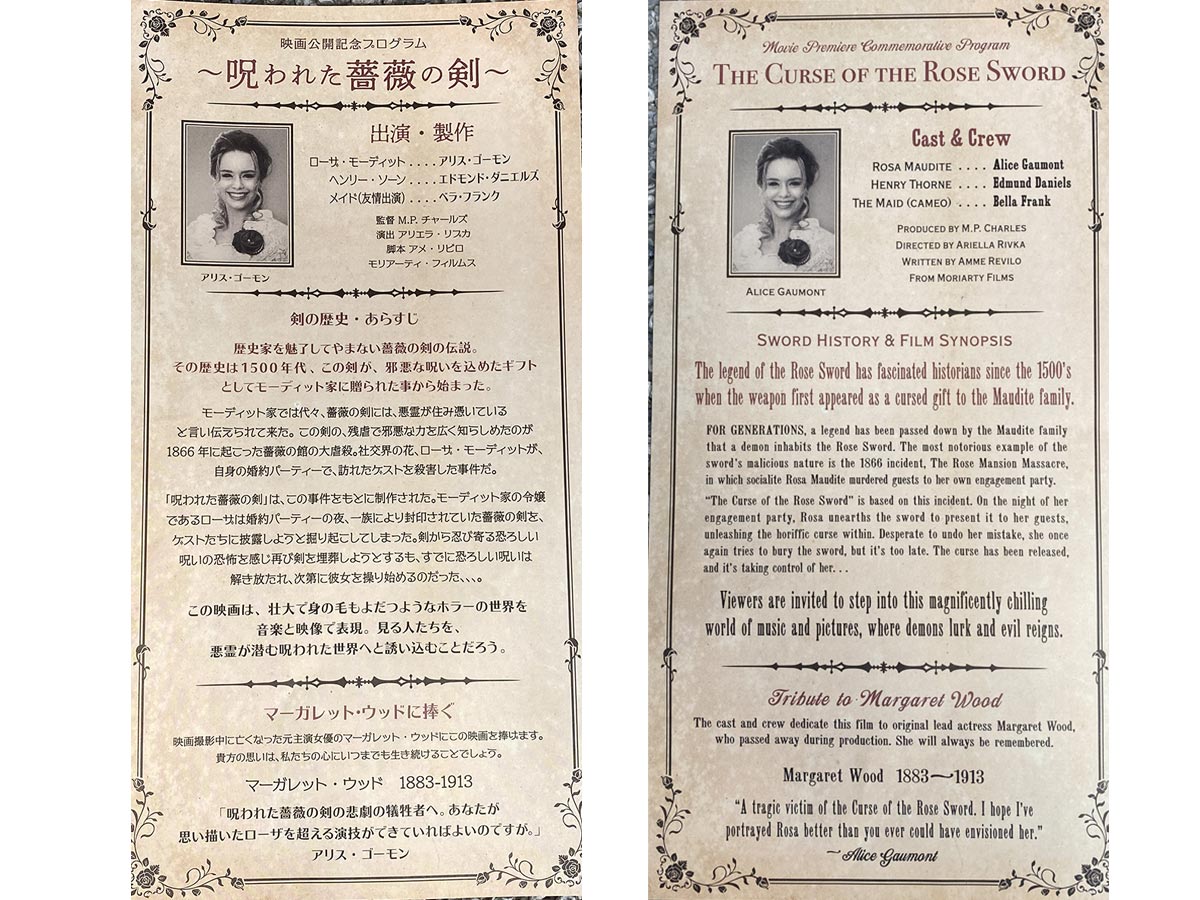 映画公開記念プログラム
～呪われた薔薇の剣～
出演・製作
ローサ・モーディット....アリス・ゴーモン
ヘンリー・ソーン....エドモンド・ダニエルズ
メイド(友情出演)....ベラ・フランク
監督 M.P. チャールズ
演出 アリエラ・リブカ
脚本 アメ・リビロ
モリアーティ・フィルムス
アリス・ゴーモン
剣の歴史・あらすじ
歴史家を魅了してやまない薔薇の剣の伝説。
その歴史は1500年代、この剣が、邪悪な呪いを込めたギフト
としてモーディット家に贈られた事から始まった。
モーディット家では代々、薔薇の剣には、悪霊が住み憑いている
と言い伝えられて来た。この剣の、残虐で邪悪な力を広く知らしめたのが
1866年に起こった薔薇の館の大虐殺。社交界の花、ローサ・モーディットが、
自身の婚約パーティーで、訪れたゲストを殺害した事件だ。
「呪われた薔薇の剣」は、この事件をもとに制作された。モーディット家の令嬢
であるローサは婚約パーティーの夜、一族により封印されていた薔薇の剣を、
ゲストたちに披露しようと掘り起こしてしまった。剣から忍び寄る恐ろしい
呪いの恐怖を感じ再び剣を埋葬しようとするも、すでに恐ろしい呪いは
解き放たれ、次第に彼女を操り始めるのだった、、、。
この映画は、壮大で身の毛もよだつようなホラーの世界を
音楽と映像で表現。見る人たちを、
悪霊が潜む呪われた世界へと誘い込むことだろう。
マーガレット・ウッドに捧ぐ
映画撮影中に亡くなった元主演女優のマーガレット・ウッドにこの映画を捧げます。
貴方の思いは、私たちの心にいつまでも生き続けることでしょう。
マーガレット・ウッド 1883-1913
「呪われた薔薇の剣の悲劇の犠牲者へ。あなたが
思い描いたローザを超える演技ができていればよいのですが。」
アリス・ゴーモン
Movie Premiere Commemorative Program
THE CURSE OF THE ROSE SWORD
Cast & Crew
ROSA MAUDITE .... Alice Gaumont
HENRY THORNE .... Edmund Daniels
THE MAID (CAMEO) .... Bella Frank
PRODUCED BY M.P. CHARLES
DIRECTED BY ARIELLA RIVKA
WRITTEN BY AMME REVILO
FROM MORIARTY FILMS
ALICE GAUMONT
SWORD HISTORY & FILM SYNOPSIS
The legend of the Rose Sword has fascinated historians since the 1500's
when the weapon first appeared as a cursed gift to the Maudite family.
FOR GENERATIONS, a legend has been passed down by the Maudite family
that a demon inhabits the Rose Sword. The most notorious example of the
sword's malicious nature is the 1866 incident, The Rose Mansion Massacre,
in which socialite Rosa Maudite murdered guests to her own engagement party.
"The Curse of the Rose Sword" is based on this incident. On the night of her
engagement party, Rosa unearths the sword to present it to her guests,
unleashing the horiffic curse within. Desperate to undo her mistake, she once
again tries to bury the sword, but it's too late. The curse has been released,
and it's taking control of her...
Viewers are invited to step into this magnificently chilling
world of music and pictures, where demons lurk and evil reigns.
Tribute to Margaret Wood
The cast and crew dedicate this film to original lead actress Margaret Wood,
who passed away during production. She will always be remembered.
Margaret Wood 1883～1913
"A tragic victim of the Curse of the Rose Sword. I hope I've
portrayed Rosa better than you ever could have envisioned her."
～Alice Gaumont